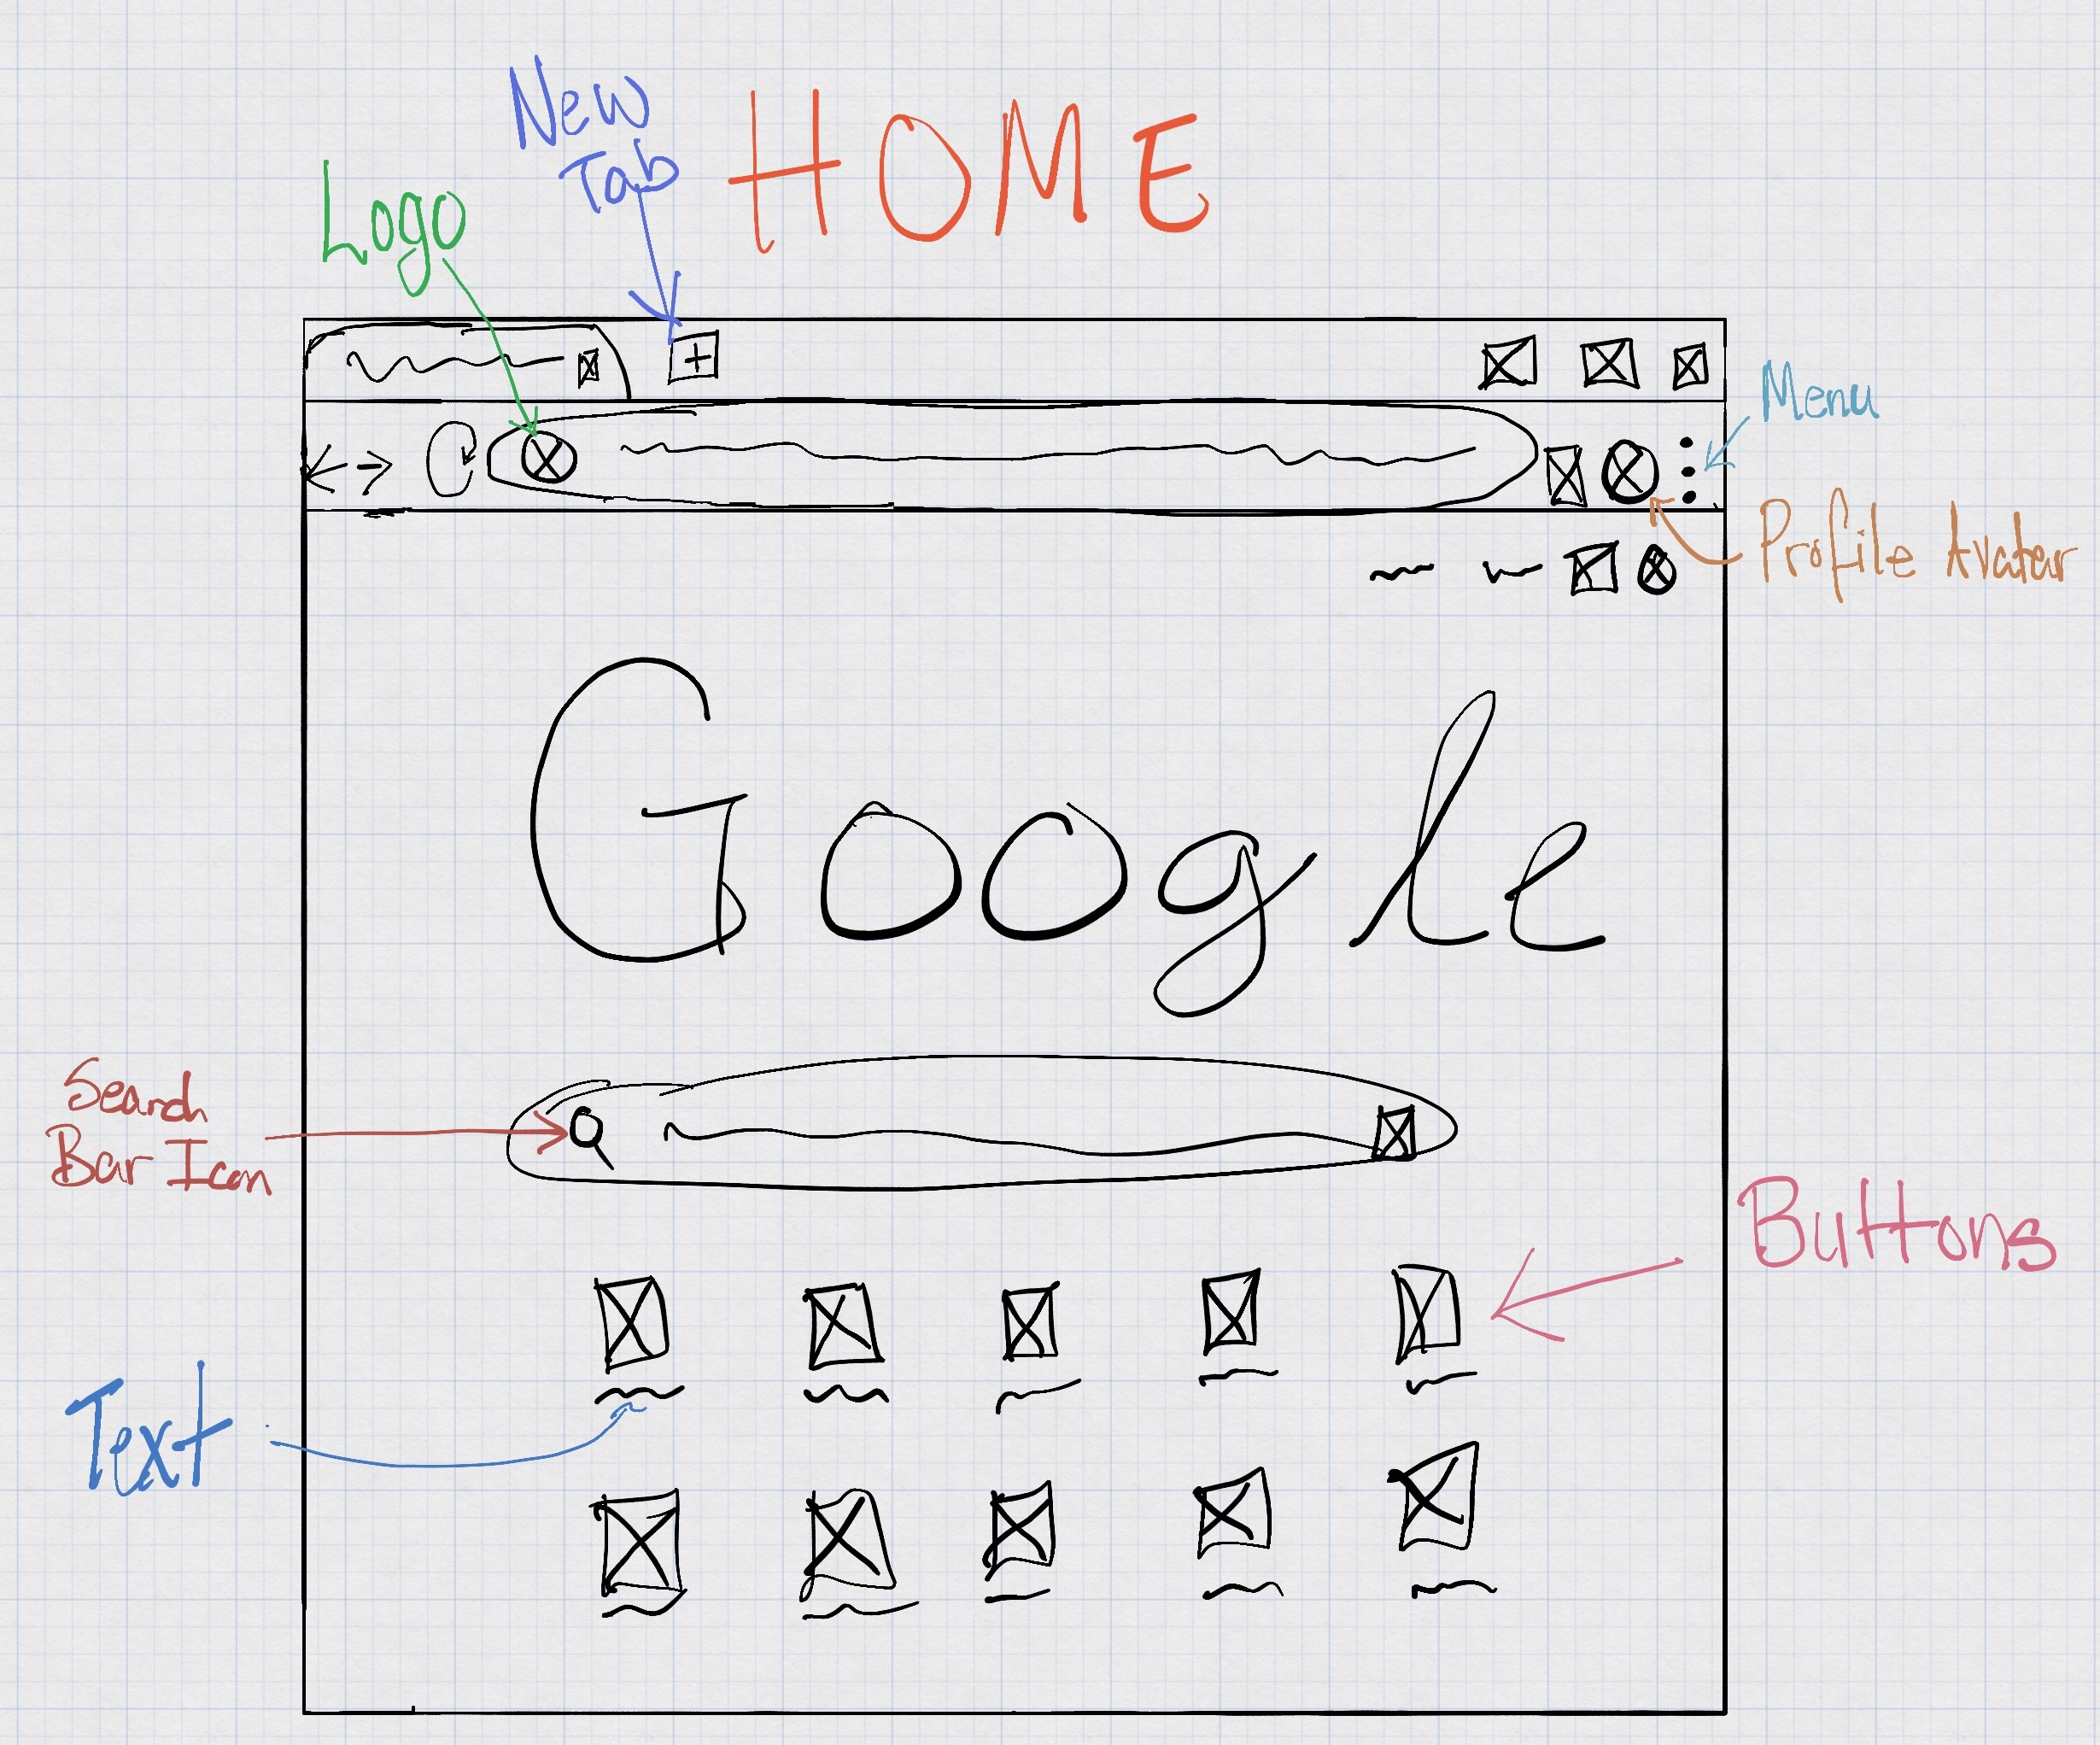 New
Tab
HOME
Logo
Menu
Profile Avatar
Google
Search
Bar Icon
Buttons
Text